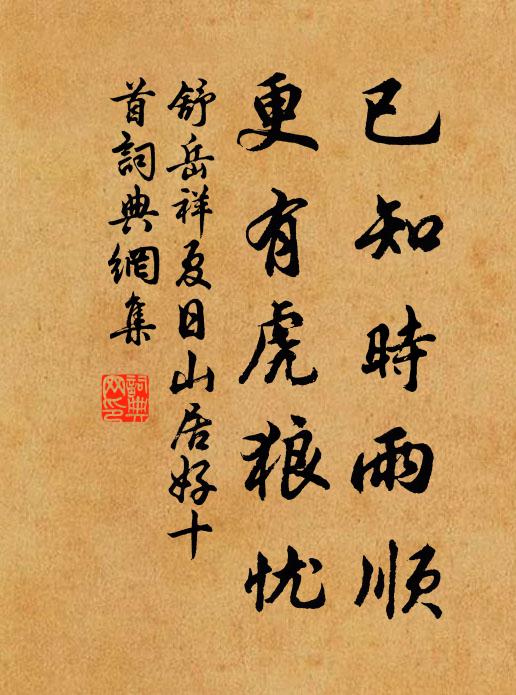 已知時雨順
更有虎狼忧
舒岳祥夏日山居好十
首詞典網集
詞典
网印